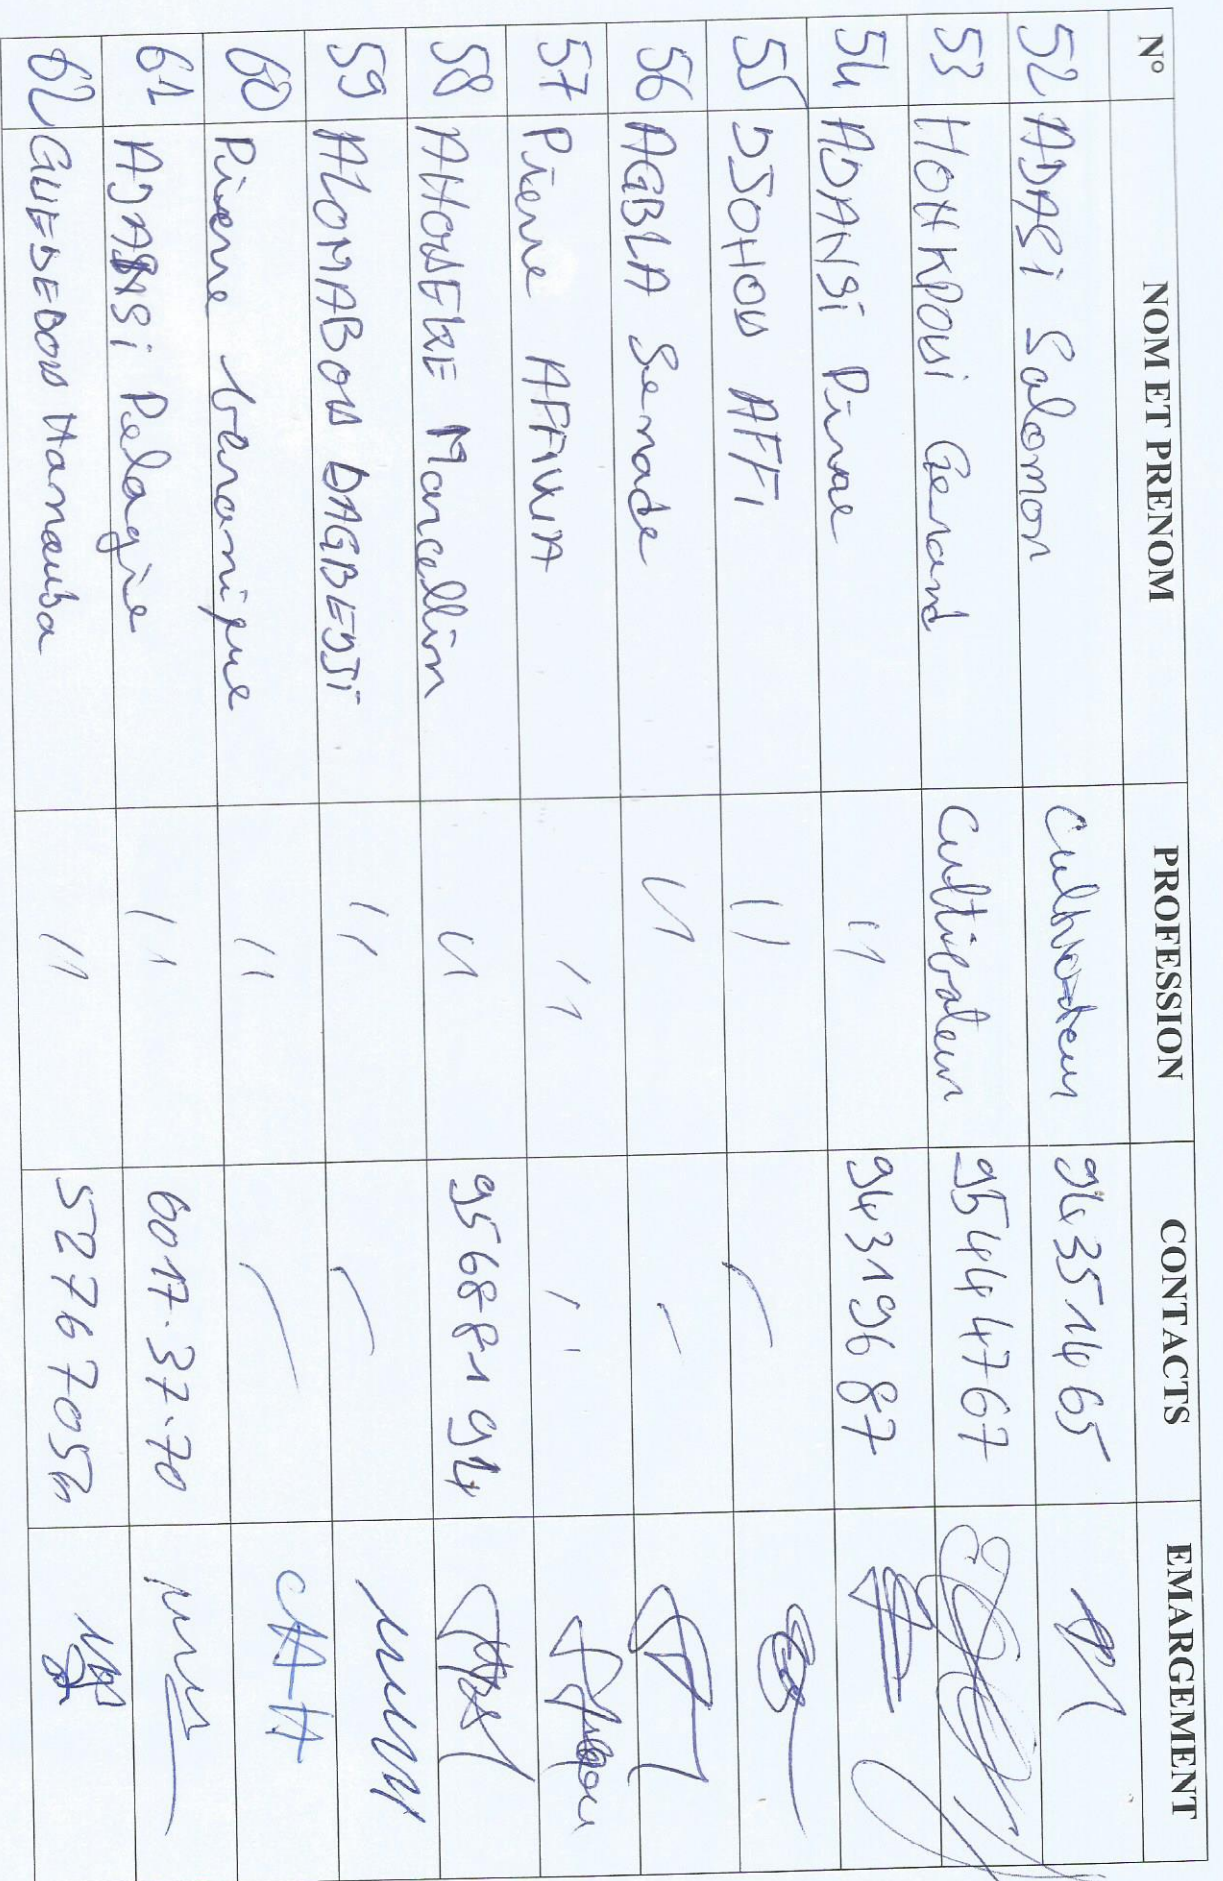 N° NOM ET PRENOM PROFESSION CONTACTS EMARGEMENT
52 ADASi Salomon Cultivateur 94351465
53 HOHKPOUi Gerard Cultivateur 95444767
54 ADANSi Pierre 11 94319687
55 DJOHOU AFFI 11
56 AGBLA Semade 11
57 Pierre AFFIVIA 11
58 AHOUEKE Marcellin 11 95688194
59 ALOMABOU DAGBEDJi 11
60 Pierre veronique 11
61 ADANSi Pelagie 11 6017.37.70
62 GUEDEDOU 11